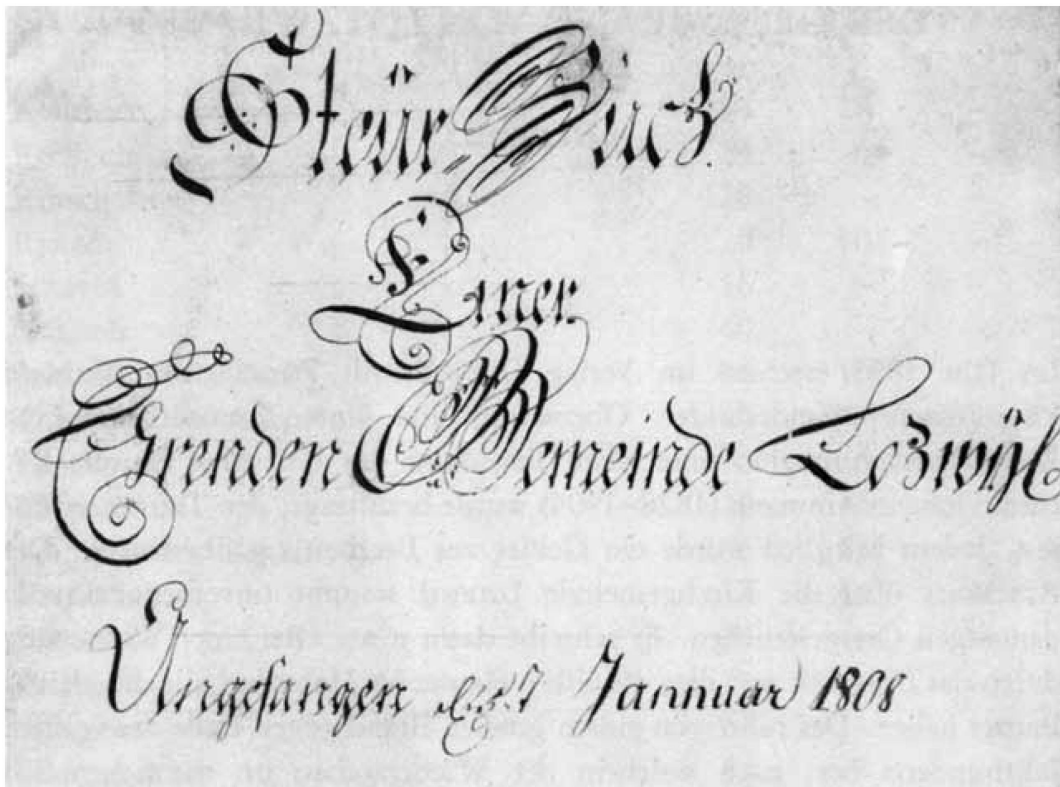 Steür-Buch.
Einer
Ehrenden Gemeinde Lozwÿl
Angefangen d. 1. Januar 1808